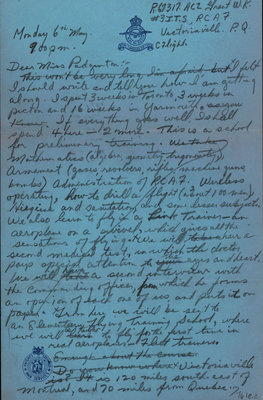 R69317 AC2 Grant W.K.
Monday 6th May.
#3 I.T.S. R.C.A.F.
9:00 p.m.
Victoriaville. P.Q.
C Flight.
Dear Miss Padgunta:-
This won't be very long I'm afraid but I felt
I should write and tell you how I am getting
along. I spent 3 weeks in Toronto, 2 weeks in
Picton and 16 weeks in Yarmouth,
If everything goes well, I shall
spend 4 here - 2 more. This is a school
for preliminary training. We take
Mathematics (algebra, geometry, trigonometry)
Armament (gasses, revolvers, rifles, machine guns,
bombs) Administration of R.C.A.F. Wireless
operating, how to drill a flight (about 40 men)
Hygiene and sanitation, and some lesser subjects.
We also learn to fly in a Link trainer - an
aeroplane on a swivel, which gives all the
sensations of flying. We will have
second medical test, in which the doctor
pays special attention to eyes and heart.
We will have a second interview with
the Commanding officer, from which he forms
an opinion of each one of us and puts it on
paper. Then we will be sent to
an Elementary Flying Training School, where
we will learn to fly for the first time in
real aeroplanes - Fleet trainers.
Enough about the course.
Do you know where Victoriaville
is? It is 120 miles south-east of
Montreal, and 70 miles from Quebec. in